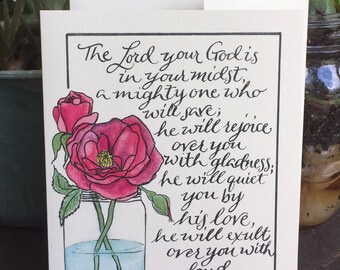 The Lord your God is
in your midst,
a mighty one who
will save;
he will rejoice
over you
with gladness;
he will quiet
you by
his love,
he will exult
over you with
loud